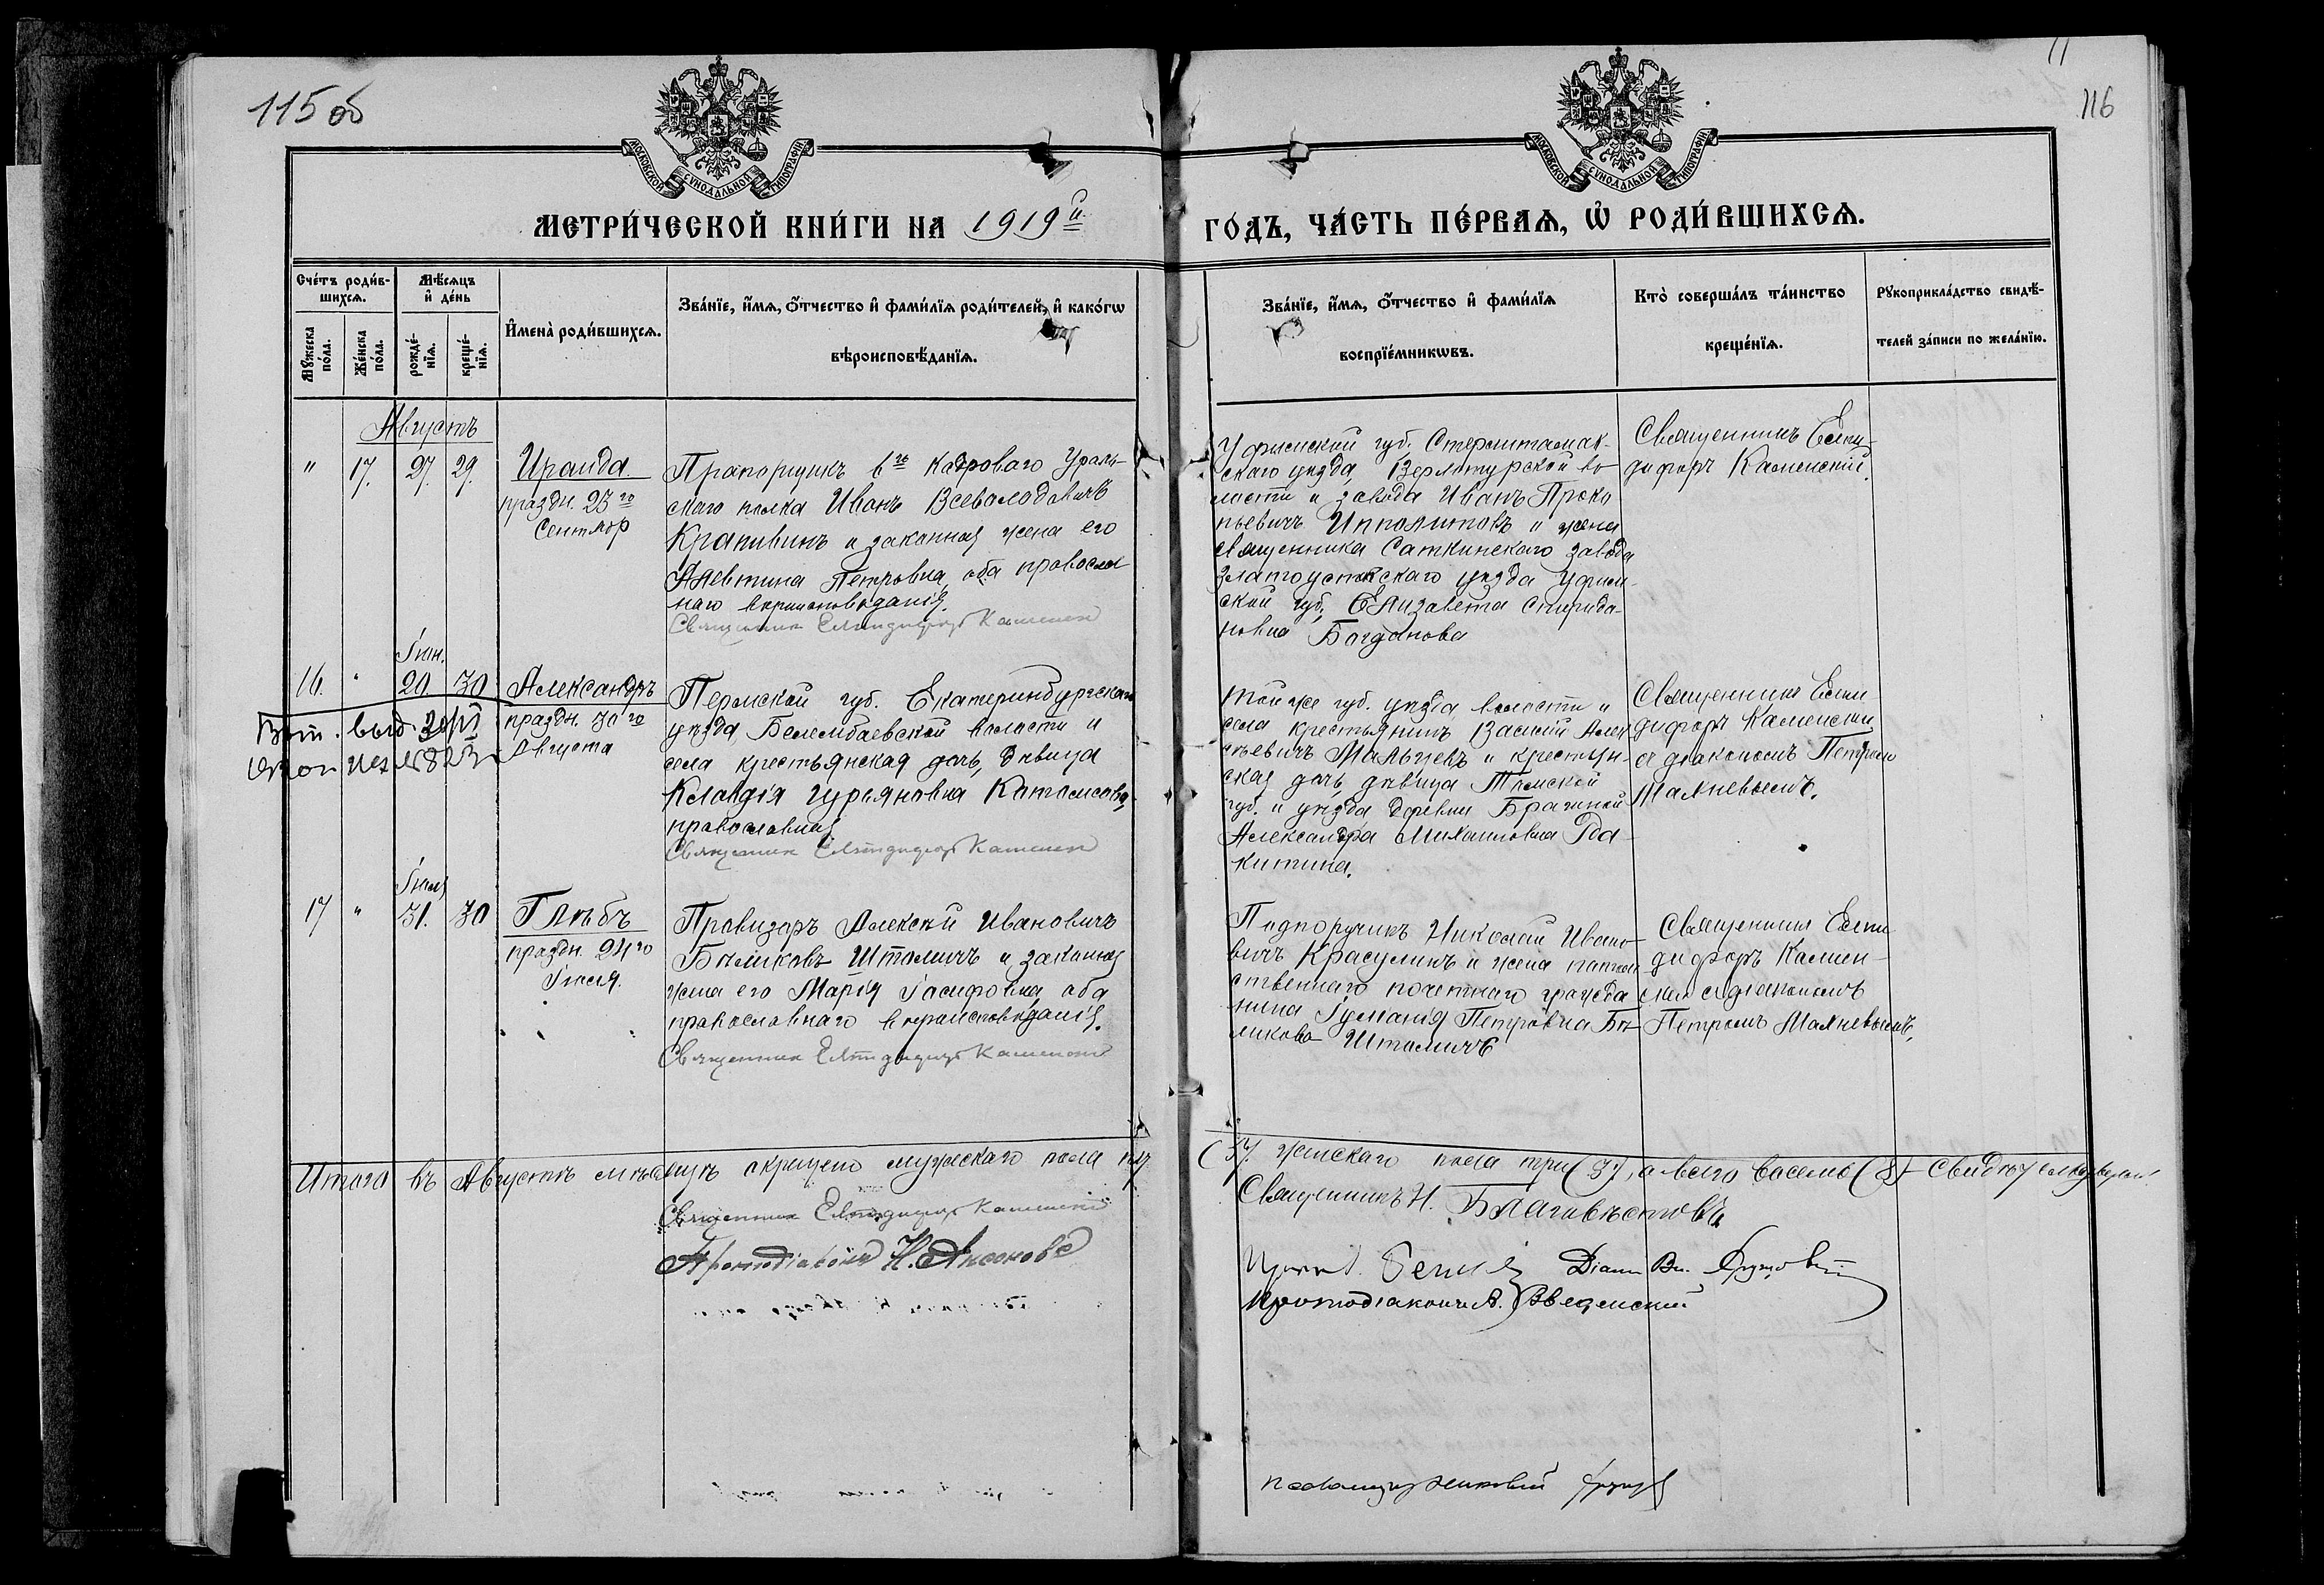 115 об
11
116
МОСКОВСКОЙ СѴНОДАЛЬНОЙ ТИПОГРАФІИ
МОСКОВСКОЙ СѴНОДАЛЬНОЙ ТИПОГРАФІИ
МЕТРИ́ЧЕСКОЙ КНИ́ГИ НА 1919й
ГО́ДЪ, ЧА́СТЬ ПЕ́РВАѦ, Ѽ РОДИ́ВШИХСѦ.
Сче́тъ роди́в-
шихсѧ.
Мѣ́сѧцъ
и҆ де́нь
Мꙋ́жеска
по́ла.
Же́нска
по́ла.
рожде́-
нїѧ.
креще́-
нїѧ.
И҆мена̀ роди́вшихсѧ.
Зва́нїе, и҆́мѧ, ѻ҆́тчество и҆ фами́лїѧ роди́телей, и҆ како́гѡ
вѣроисповѣ́данїѧ.
Зва́нїе, и҆́мѧ, ѻ҆́тчество и҆ фами́лїѧ
воспрїе́мникѡвъ.
Кто̀ соверша́лъ та́инство
креще́нїѧ.
Рꙋкоприкла́дство свидѣ́-
телей за́писи по жела́нїю.
Августъ
" 17. 27. 29. Ираида.
праздн. 23го
Сентябр
Прапорщикъ 6го Кадроваго Ураль-
скаго полка Иванъ Всеволодовичъ
Крапивинъ и законная жена его
Алевтина Петровна, оба православ
наго вероисповѣданія.
Священник Елпидифор Каменск
Уфимской губ. Стерлитамак-
скаго уезда, Верхотурской во-
лости и завода Иванъ Проко
пьевичъ Ипполитовъ и жена
священника Саткинскаго завода
Златоустовскаго уѣзда Уфим-
ской губ. Елизавета Спиридо-
новна Богданова
Священникъ Елпи-
дифоръ Каменскій.
Іюн.
16. " 20 30 Александръ
праздн. 30го
Августа
выд. №823
Пермской губ. Екатеринбургскаго
уѣзда, Белембаевской волости и
села крестьянская дочь, дѣвица
Клавдія Гурьяновна Катомсова,
православная
Священник Елпидифор Каменск
Той же губ. уѣзда волости и
села крестьянинъ Василій Алек
ѣевичъ Мальцевъ и крестьян-
ская дочь, дѣвица Томской
губ. и уѣзда деревни Бражной
Александра Михаиловна Ра-
китина.
Священникъ Елпи
дифоръ Каменскій
съ діакономъ Петромъ
Малневымъ.
Іюля
17 " 31. 30 Глѣбъ
праздн. 24го
Іюля.
Провизоръ Алексѣй Ивановичъ
Бѣликовъ Штомичъ и законная
жена его Марія Іосифовна, оба
православнаго вѣроисповѣданія.
Священник Елпидифор Каменск
Подпоручикъ Николай Ивано-
вичъ Красулинъ и жена потом
ственнаго почетнаго гражда
нина Іуліанія Петровна Бѣ-
ликова Штомичъ
Священникъ Елпи
дифоръ Камен-
скій съ діакономъ
Петромъ Малневымъ.
Итого въ Августѣ мѣсяцѣ крещено мужскаго пола пять
(5), женскаго пола три (3), а всего восемь (8)
Священник Елпидифор Каменскій
Священникъ Н. Благовѣстовъ
Протодіаконъ Н. Аксеновъ
Діакон
Протодіаконъ А. Введенскій